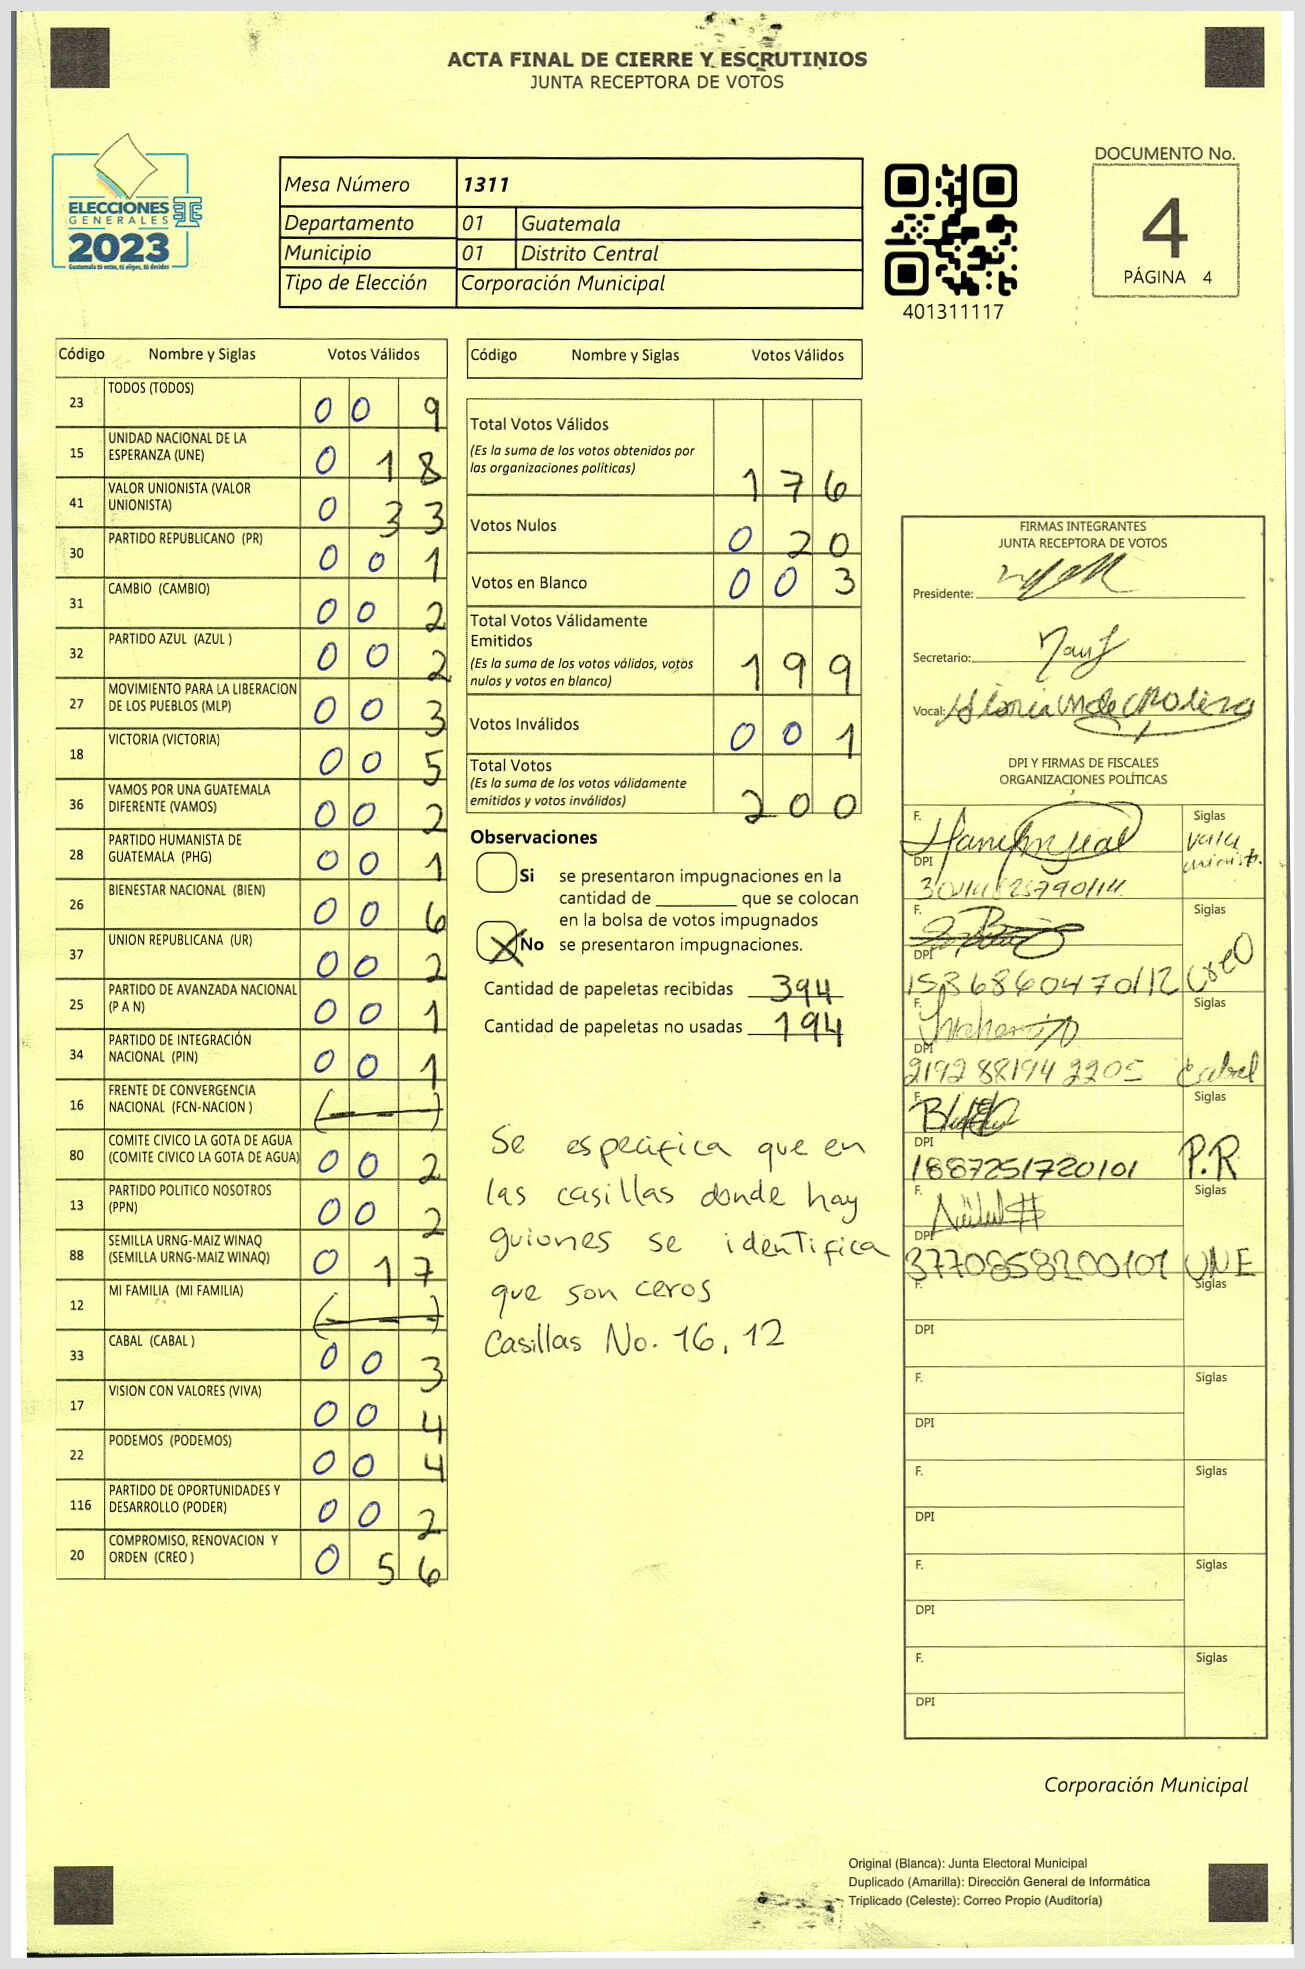 ACTA FINAL DE CIERRE Y ESCRUTINIOS
JUNTA RECEPTORA DE VOTOS
ELECCIONES
GENERALES
2023
Guatemala tú votas, tú eliges, tú decides
Mesa Número 1311
Departamento 01 Guatemala
Municipio 01 Distrito Central
Tipo de Elección Corporación Municipal
401311117
DOCUMENTO No.
4
PÁGINA 4
Código Nombre y Siglas Votos Válidos
23 TODOS (TODOS) 0 0 9
15 UNIDAD NACIONAL DE LA ESPERANZA (UNE) 0 1 8
41 VALOR UNIONISTA (VALOR UNIONISTA) 0 3 3
30 PARTIDO REPUBLICANO (PR) 0 0 1
31 CAMBIO (CAMBIO) 0 0 2
32 PARTIDO AZUL (AZUL ) 0 0 2
27 MOVIMIENTO PARA LA LIBERACION DE LOS PUEBLOS (MLP) 0 0 3
18 VICTORIA (VICTORIA) 0 0 5
36 VAMOS POR UNA GUATEMALA DIFERENTE (VAMOS) 0 0 2
28 PARTIDO HUMANISTA DE GUATEMALA (PHG) 0 0 1
26 BIENESTAR NACIONAL (BIEN) 0 0 6
37 UNION REPUBLICANA (UR) 0 0 2
25 PARTIDO DE AVANZADA NACIONAL (P A N) 0 0 1
34 PARTIDO DE INTEGRACIÓN NACIONAL (PIN) 0 0 1
16 FRENTE DE CONVERGENCIA NACIONAL (FCN-NACION ) (———)
80 COMITE CIVICO LA GOTA DE AGUA (COMITE CIVICO LA GOTA DE AGUA) 0 0 2
13 PARTIDO POLITICO NOSOTROS (PPN) 0 0 2
88 SEMILLA URNG-MAIZ WINAQ (SEMILLA URNG-MAIZ WINAQ) 0 1 7
12 MI FAMILIA (MI FAMILIA) (———)
33 CABAL (CABAL ) 0 0 3
17 VISION CON VALORES (VIVA) 0 0 4
22 PODEMOS (PODEMOS) 0 0 4
116 PARTIDO DE OPORTUNIDADES Y DESARROLLO (PODER) 0 0 2
20 COMPROMISO, RENOVACION Y ORDEN (CREO ) 0 5 6
Código Nombre y Siglas Votos Válidos
Total Votos Válidos
(Es la suma de los votos obtenidos por
las organizaciones políticas) 1 7 6
Votos Nulos 0 2 0
Votos en Blanco 0 0 3
Total Votos Válidamente
Emitidos
(Es la suma de los votos válidos, votos
nulos y votos en blanco) 1 9 9
Votos Inválidos 0 0 1
Total Votos
(Es la suma de los votos válidamente
emitidos y votos inválidos) 2 0 0
Observaciones
Si se presentaron impugnaciones en la
cantidad de ________ que se colocan
en la bolsa de votos impugnados
X No se presentaron impugnaciones.
Cantidad de papeletas recibidas 394
Cantidad de papeletas no usadas 194
Se especifica que en
las casillas donde hay
guiones se identifica
que son ceros
Casillas No. 16, 12
FIRMAS INTEGRANTES
JUNTA RECEPTORA DE VOTOS
Presidente:
Secretario:
Vocal:
DPI Y FIRMAS DE FISCALES
ORGANIZACIONES POLÍTICAS
F. Siglas
DPI
F. Siglas
DPI 1536860470112 Creo
F. Siglas
DPI 2192 88194 2205 Cabal
F. Siglas
DPI 1887251720101 P.R
F. Siglas
DPI 3770858200101 UNE
F. Siglas
DPI
F. Siglas
DPI
F. Siglas
DPI
F. Siglas
DPI
F. Siglas
DPI
Corporación Municipal
Original (Blanca): Junta Electoral Municipal
Duplicado (Amarilla): Dirección General de Informática
Triplicado (Celeste): Correo Propio (Auditoría)